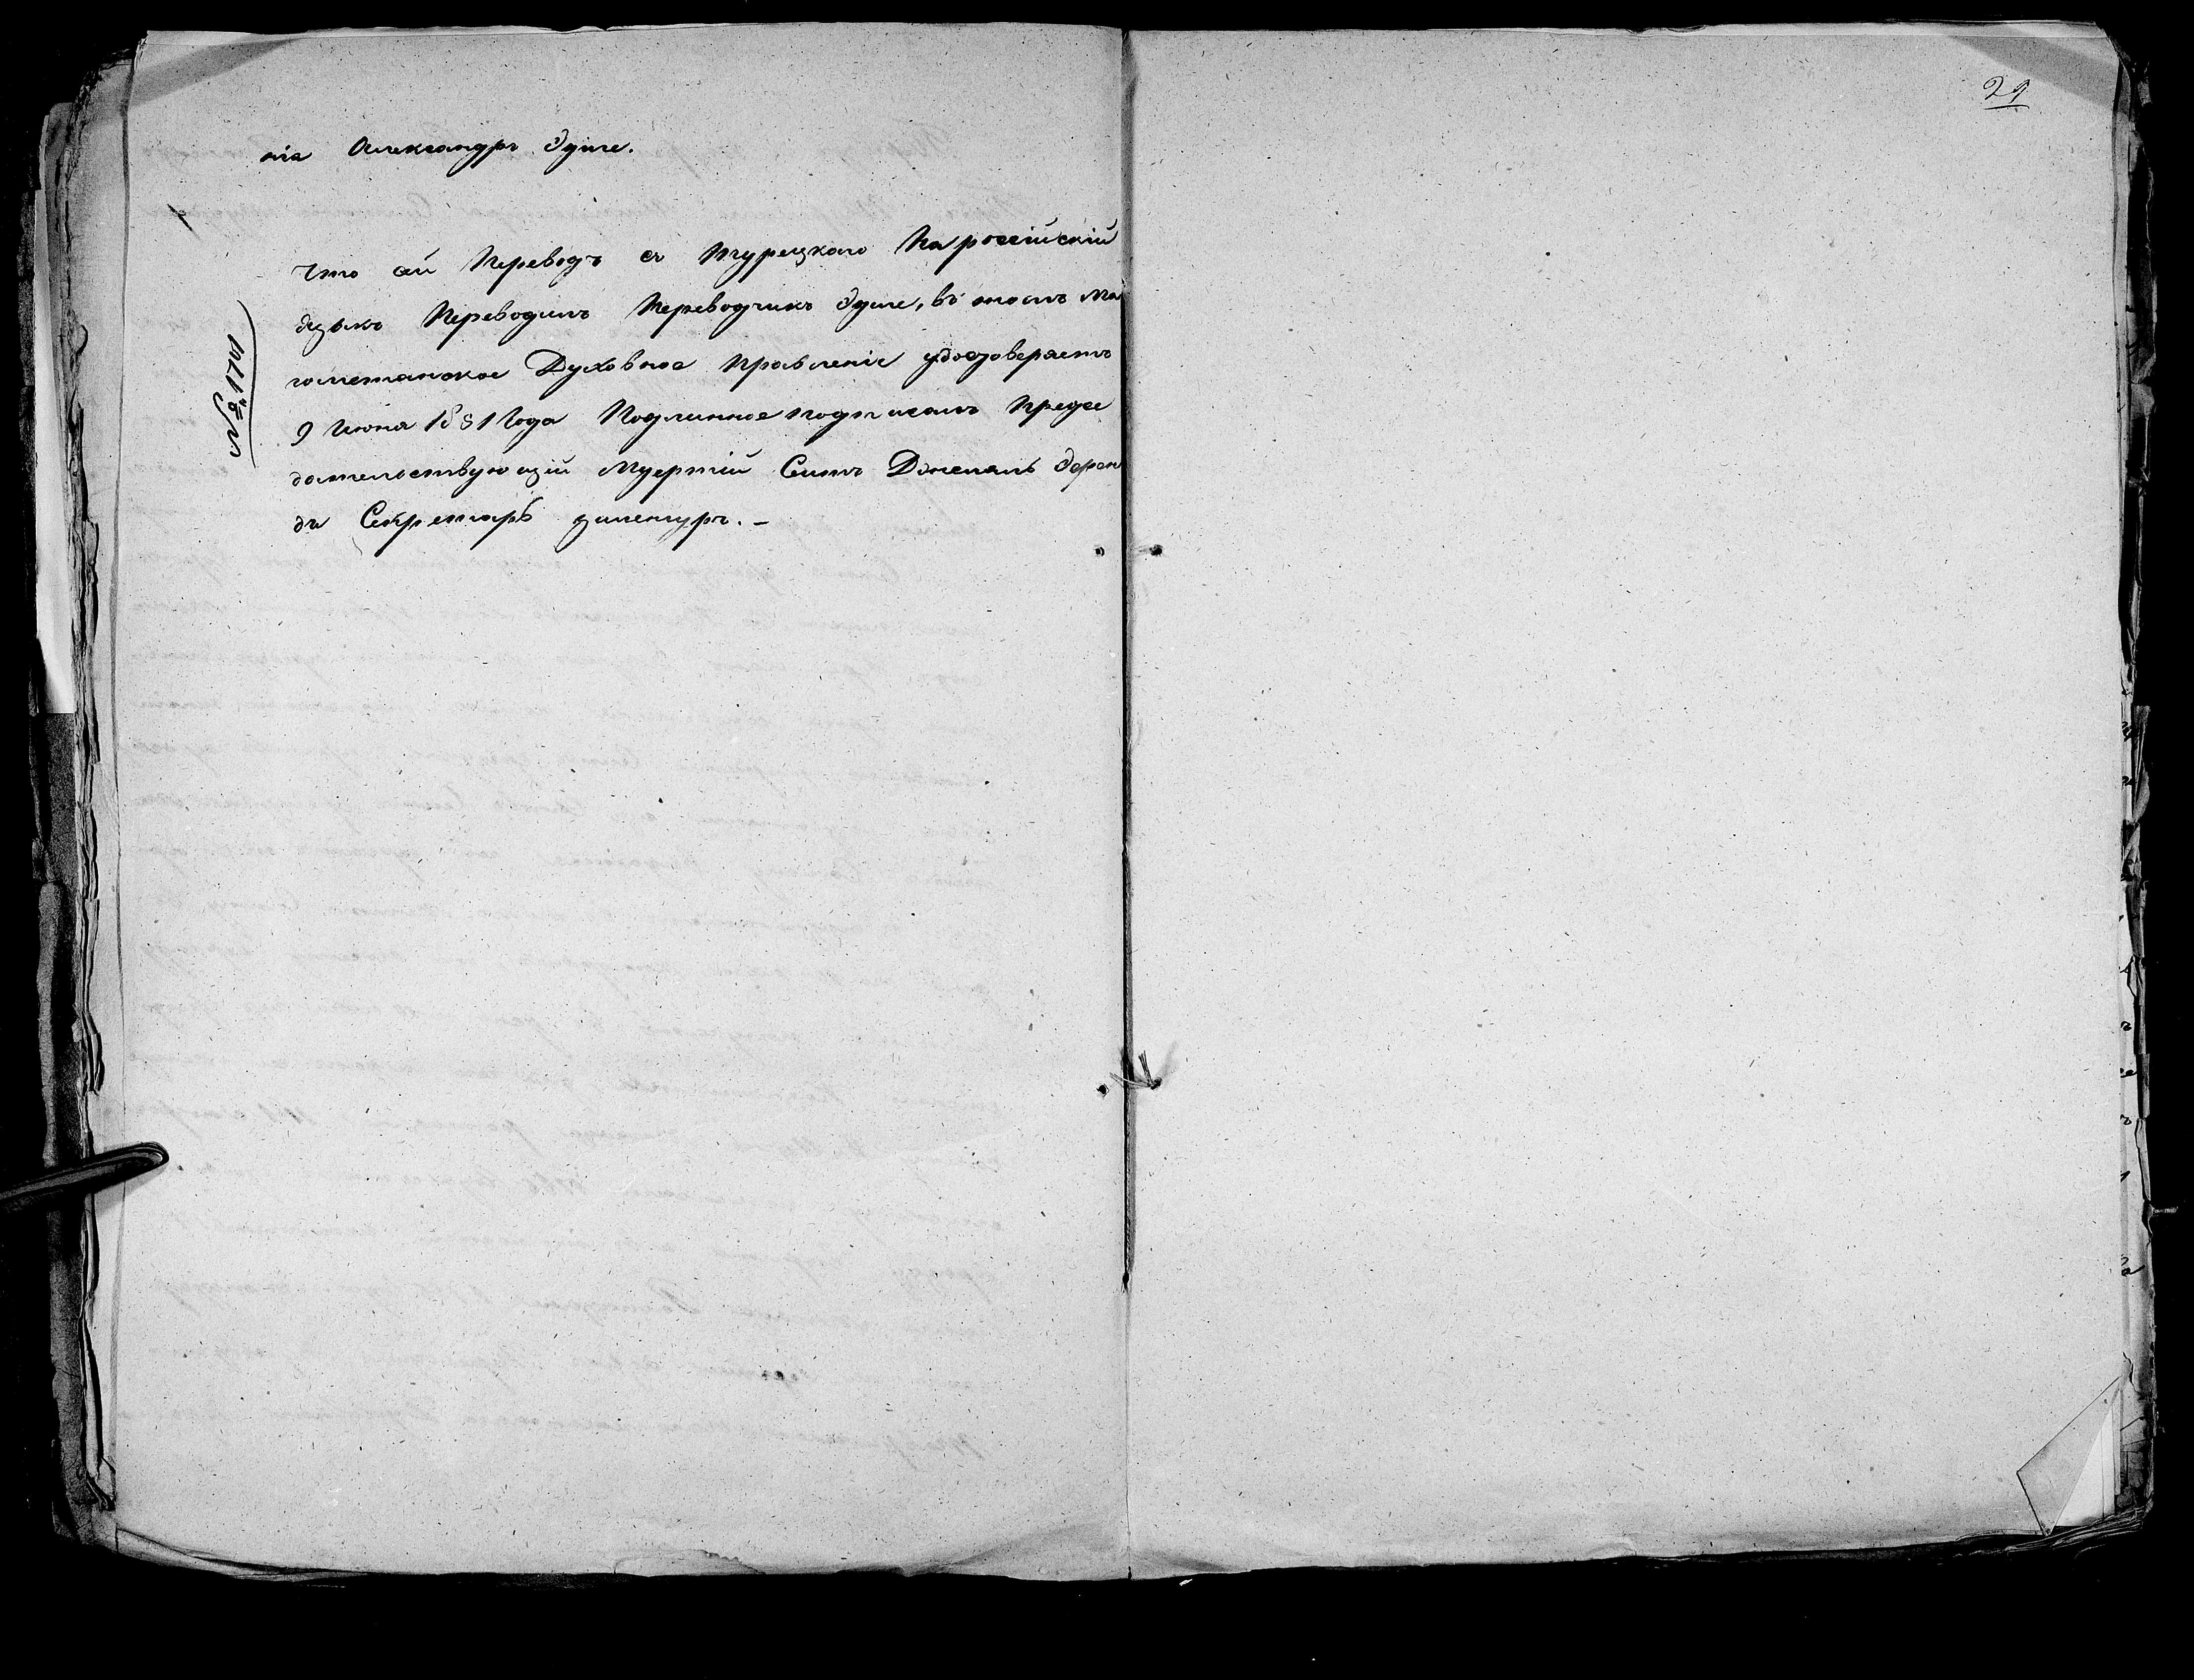 нiя Александръ Эдуме.
Что сей Переводъ съ Турецкаго На россiйскiй
Языкъ Переводилъ Переводчикъ Эдуме, въ томъ Ма
гометанское Духовное Правленiе удостоверяетъ
9 Июня 1831 Года Подлинное подписалъ Предсе
дательствующiй Муфтiй Сеитъ Джемиль Эфен
ди Секретарь
№ 1701
29